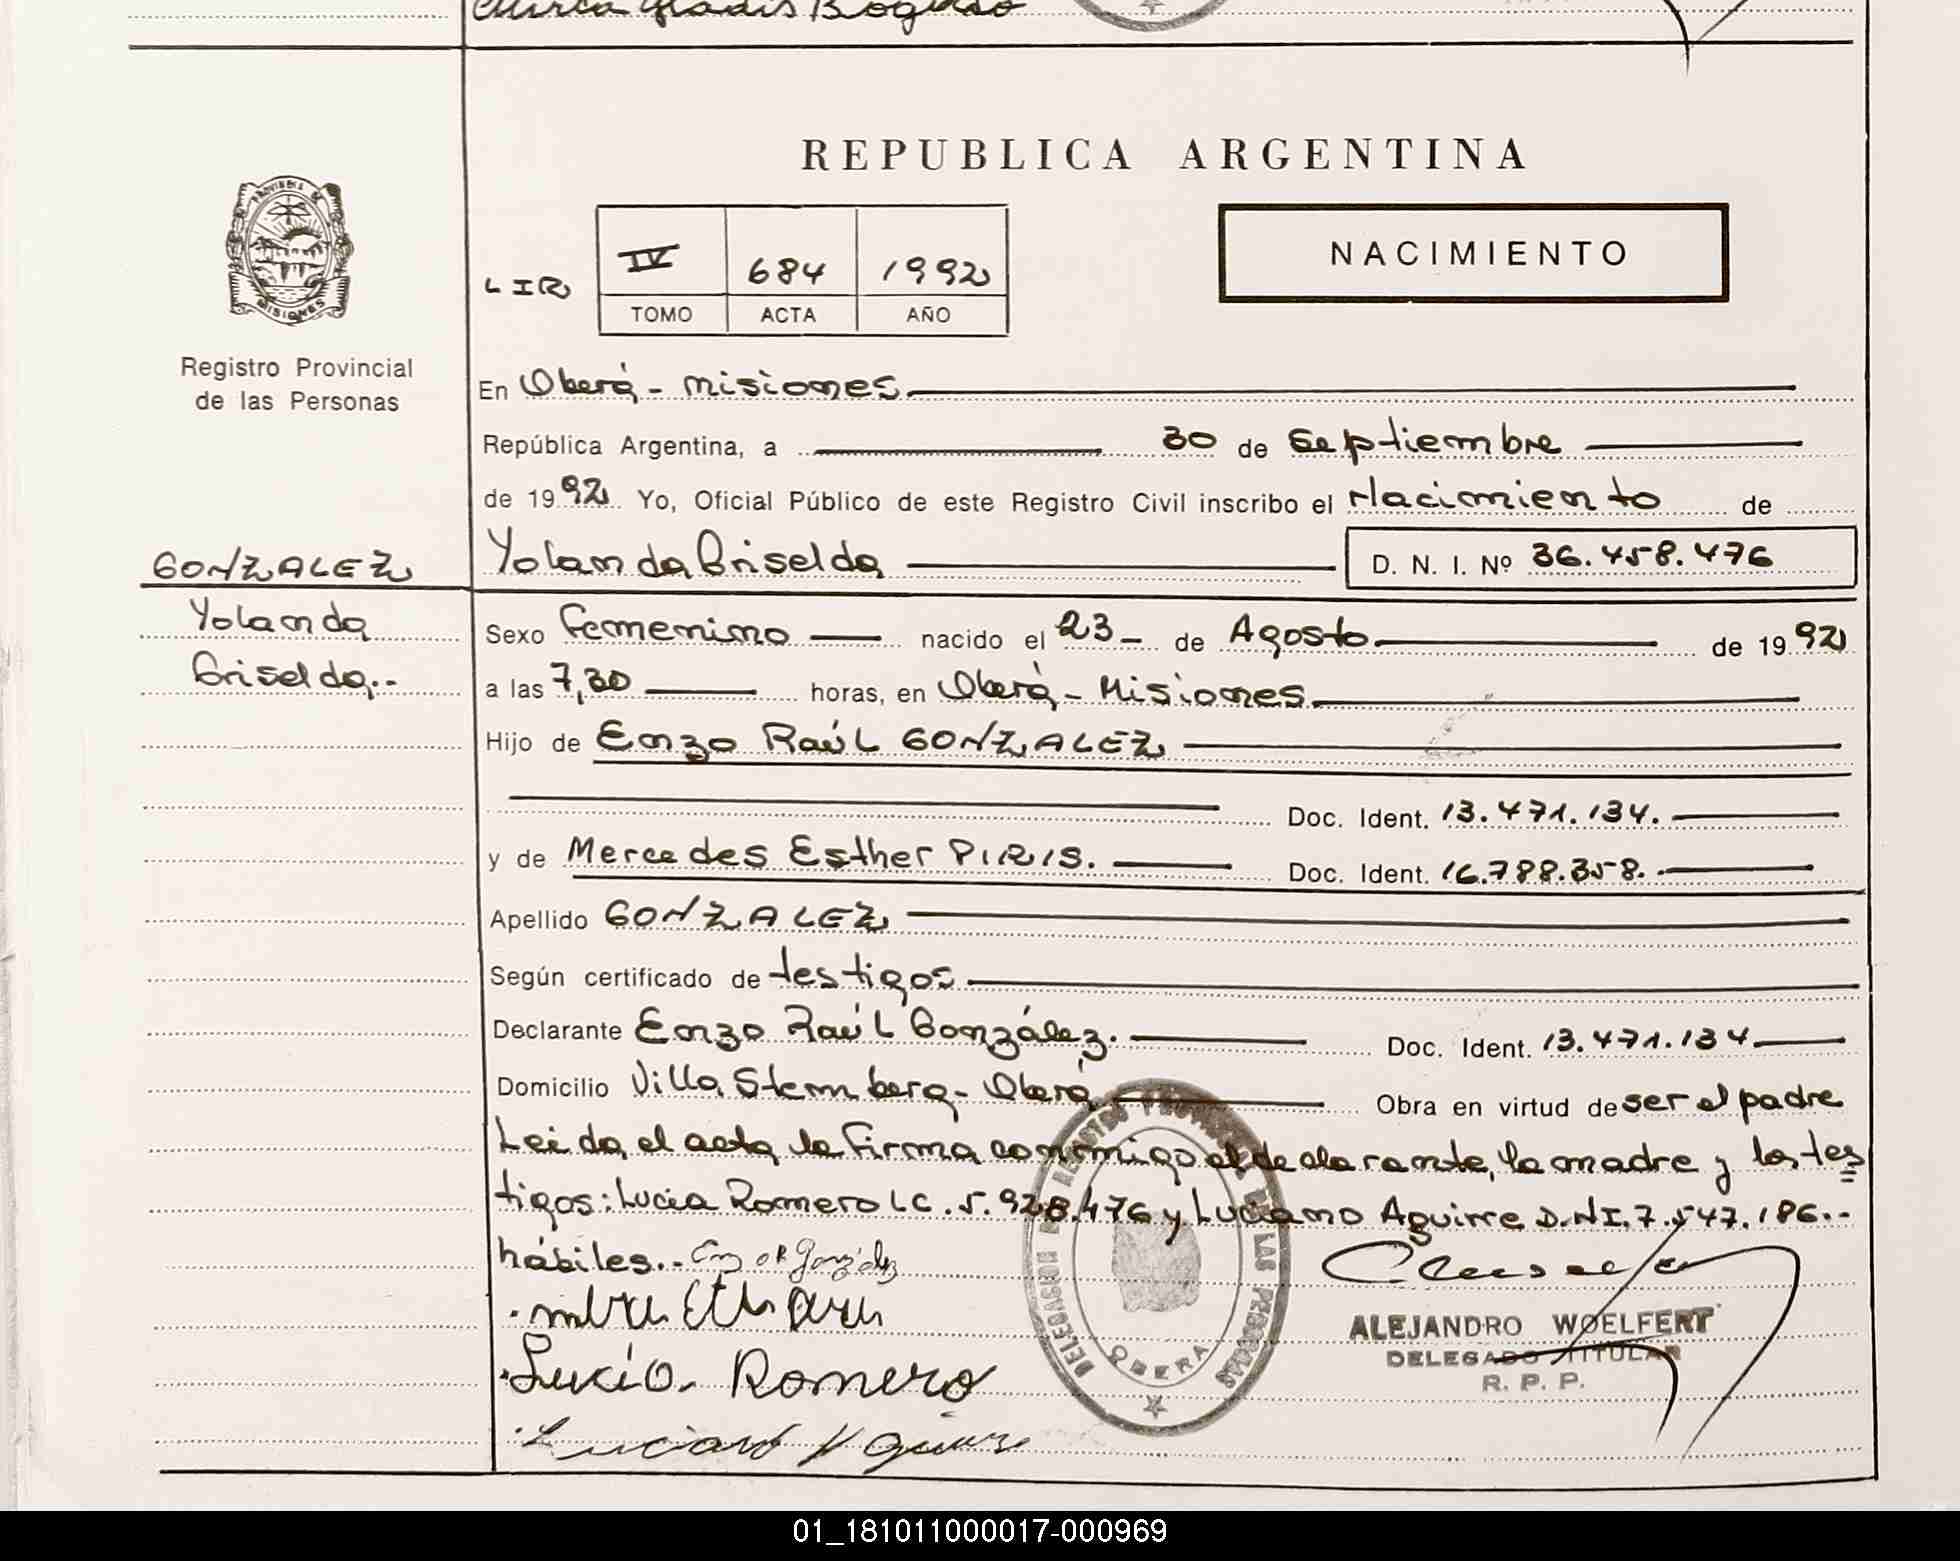 REPUBLICA ARGENTINA
PROVINCIA DE
MISIONES
Registro Provincial
de las Personas
LIR
IV 684 1992
TOMO ACTA AÑO
NACIMIENTO
En Oberá - Misiones
República Argentina, a 30 de Septiembre
de 1992 Yo, Oficial Público de este Registro Civil inscribo el Nacimiento de
GONZALEZ Yolanda Griselda D. N. I. Nº 36.458.476
Yolanda
Griselda..
Sexo Femenino nacido el 23 - de Agosto de 1992
a las 7,30 horas, en Oberá - Misiones
Hijo de Enzo Raúl GONZALEZ
Doc. Ident. 13.471.134.
y de Mercedes Esther PIRIS. Doc. Ident. 16.788.358.
Apellido GONZALEZ
Según certificado de testigos
Declarante Enzo Raúl González. Doc. Ident. 13.471.134
Domicilio Villa Stemberg - Oberá Obra en virtud de ser el padre
Leida el acta la firma conmigo el declarante, la madre y los tes
tigos: Lucia Romero LC. 5.928.476 y Luciano Aguirre D.N.I. 7.547.186..
hábiles..
Lucio Romero
Luciano Aguirre
OBERA
ALEJANDRO WOELFERT
DELEGADO TITULAR
R. P. P.
01_181011000017-000969